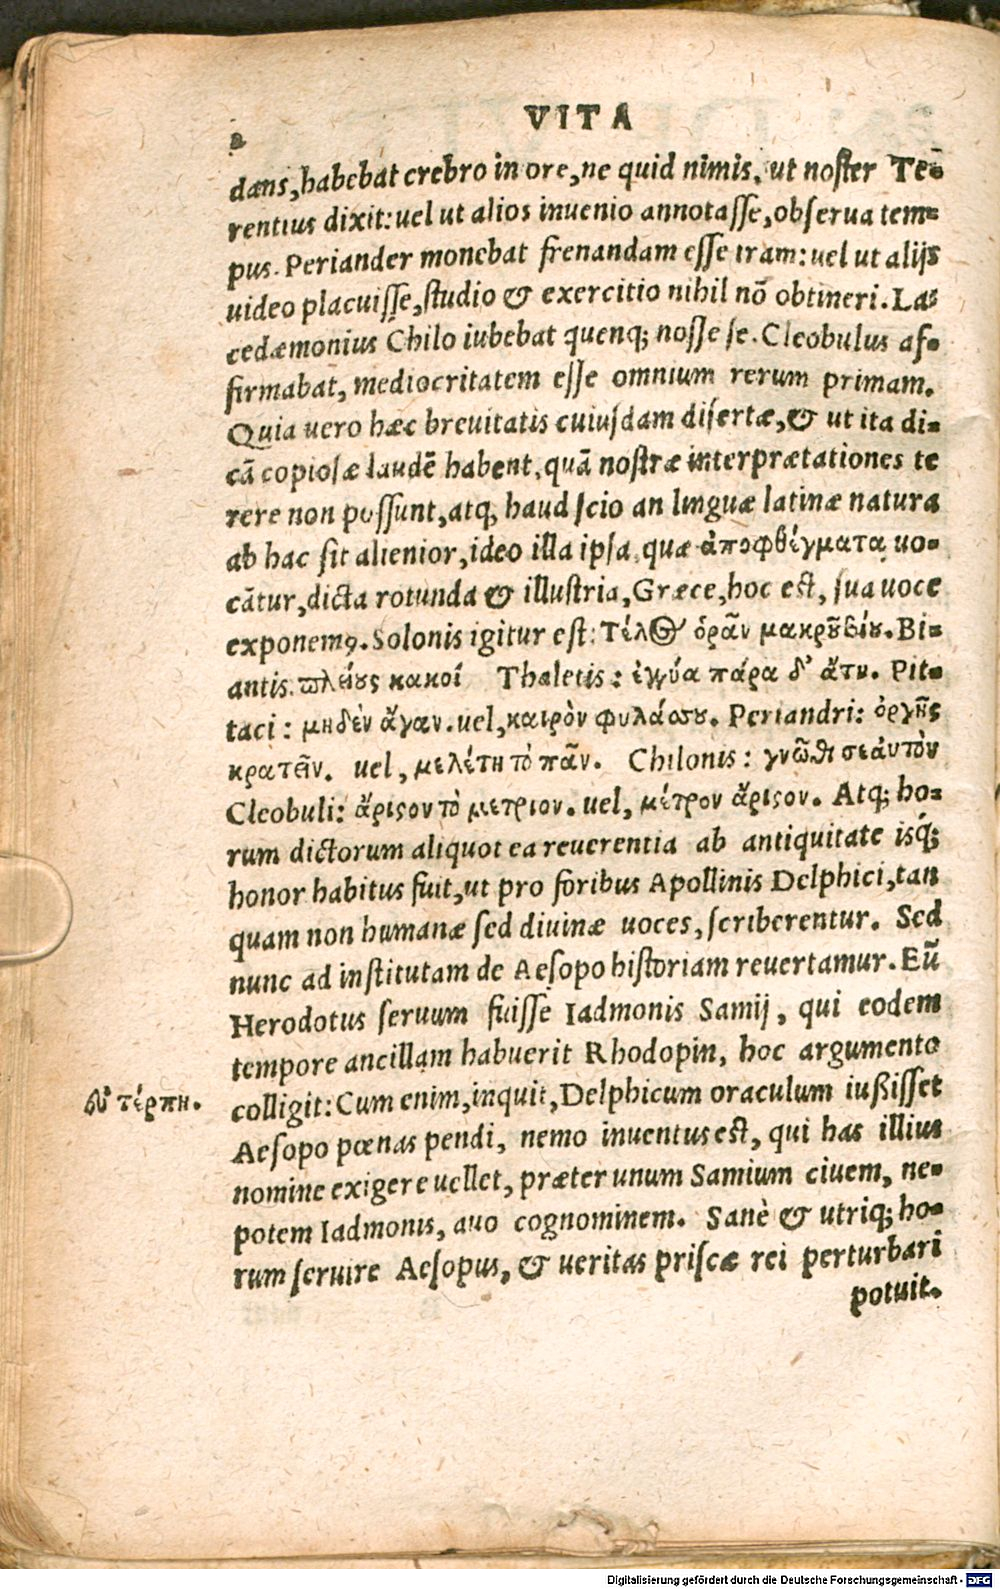 2
VITA
dans, habebat crebro in ore, ne quid nimis. ut noster Tē=
rentius dixit: uel ut alios inuenio annotasse, obserua tem=
pus. Periander monebat frenandam esse iram: uel ut alijs
uideo placuisse, studio & exercitio nihil nō obtineri. La=
cedæmonius Chilo iubebat quenq; nosse se. Cleobulus af=
firmabat, mediocritatem esse omnium rerum primam.
Quia uero hæc breuitatis cuiusdam disertæ, & ut ita di=
cā copiosæ laudē habent, quā nostræ interprætationes te
rere non possunt, atq; haud scio an linguæ latinæ natura
ab hac sit alienior, ideo illa ipsa quæ ἀποφθέγματα uo=
cātur, dicta rotunda & illustria, Græce, hoc est, sua uoce
exponemꝰ. Solonis igitur est: Τέλος ὁρᾶν μακροῦ βίου. Bi=
antis. πλείους κακοί Thaletis: ἐγγύα πάρα δ' ἄτη. Pit=
taci: μηδὲν ἄγαν. uel, καιρὸν φυλάσσου. Periandri: ὀργῆς
κρατεῖν. uel, μελέτη τὸ πᾶν. Chilonis: γνῶθι σεαυτὸν
Cleobuli: ἄριστον τὸ μετριον. uel, μέτρον ἄριστον. Atq; ho=
rum dictorum aliquot ea reuerentia ab antiquitate isq;
honor habitus fuit, ut pro foribus Apollinis Delphici, tan
quam non humanæ sed diuinæ uoces, scriberentur. Sed
nunc ad institutam de Aesopo historiam reuertamur. Eū
Herodotus seruum fuisse Iadmonis Samij, qui eodem
tempore ancillam habuerit Rhodopin, hoc argumento
ἐν τέρπη.
colligit: Cum enim, inquit, Delphicum oraculum iußisset
Aesopo pœnas pendi, nemo inuentus est, qui has illius
nomine exigere uellet, præter unum Samium ciuem, ne=
potem Iadmonis, auo cognominem. Sanè & utriq; ho=
rum seruire Aesopus, & ueritas priscæ rei perturbari
potuit.
Digitalisierung gefördert durch die Deutsche Forschungsgemeinschaft - DFG